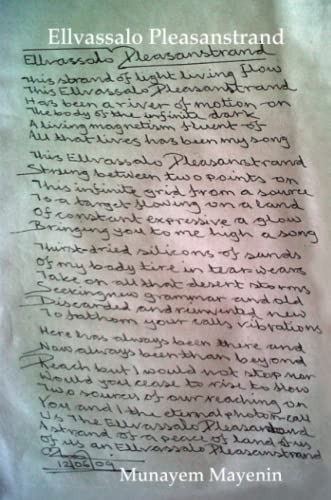 Ellvassalo Pleasanstrand
Ellvassalo Pleasanstrand
This strand of light living flow
This Ellvassalo Pleasanstrand
Has been a river of motion on
The body of the infinita dark
A living magnetism fluent of
All that lives has been my song
This Ellvassalo Pleasanstrand
String between two points on
This infinite grid from a source
To a target flowing on a land
Of constant expressive a glow
Bringing you to me high a song
Thirst-dried silicons of sands
Of my body tire in tear-wears
Take on all that desert storms
Seeking new grammar and old
Discarded and reinvented new
To fathom your calls vibrations
Here has always been there and
Now always been than beyond
Reach but I would not stop nor
Would you cease to rise to flow
Two sources of our reaching on
You and I the eternal photon-call
Us The Ellvassalo Pleasanstrand
A strand of a peace of land
of us an Ellvassalo Pleasanstrand
12/06/09
Munayem Mayenin